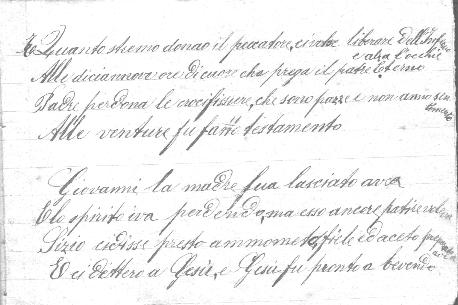 Quanto stremo donao il peccatore, ci volse liberare dell'Inferno
e alza l'occhie
Alle diciannove ore di cuore che prega il patre Eterno
Padre perdona le crocifissure, che sono pazze e non anno sen
timento
Alle venture fu fatto testamento
Giovanni la madre sua lasciato avea
E lo spirito iva perdendo, ma esso ancore patire voleva
Sizio ci disse presto ammometo, fiele ed aceto
E ci dettero a Gesù, e Gesù fu pronto a bevendo